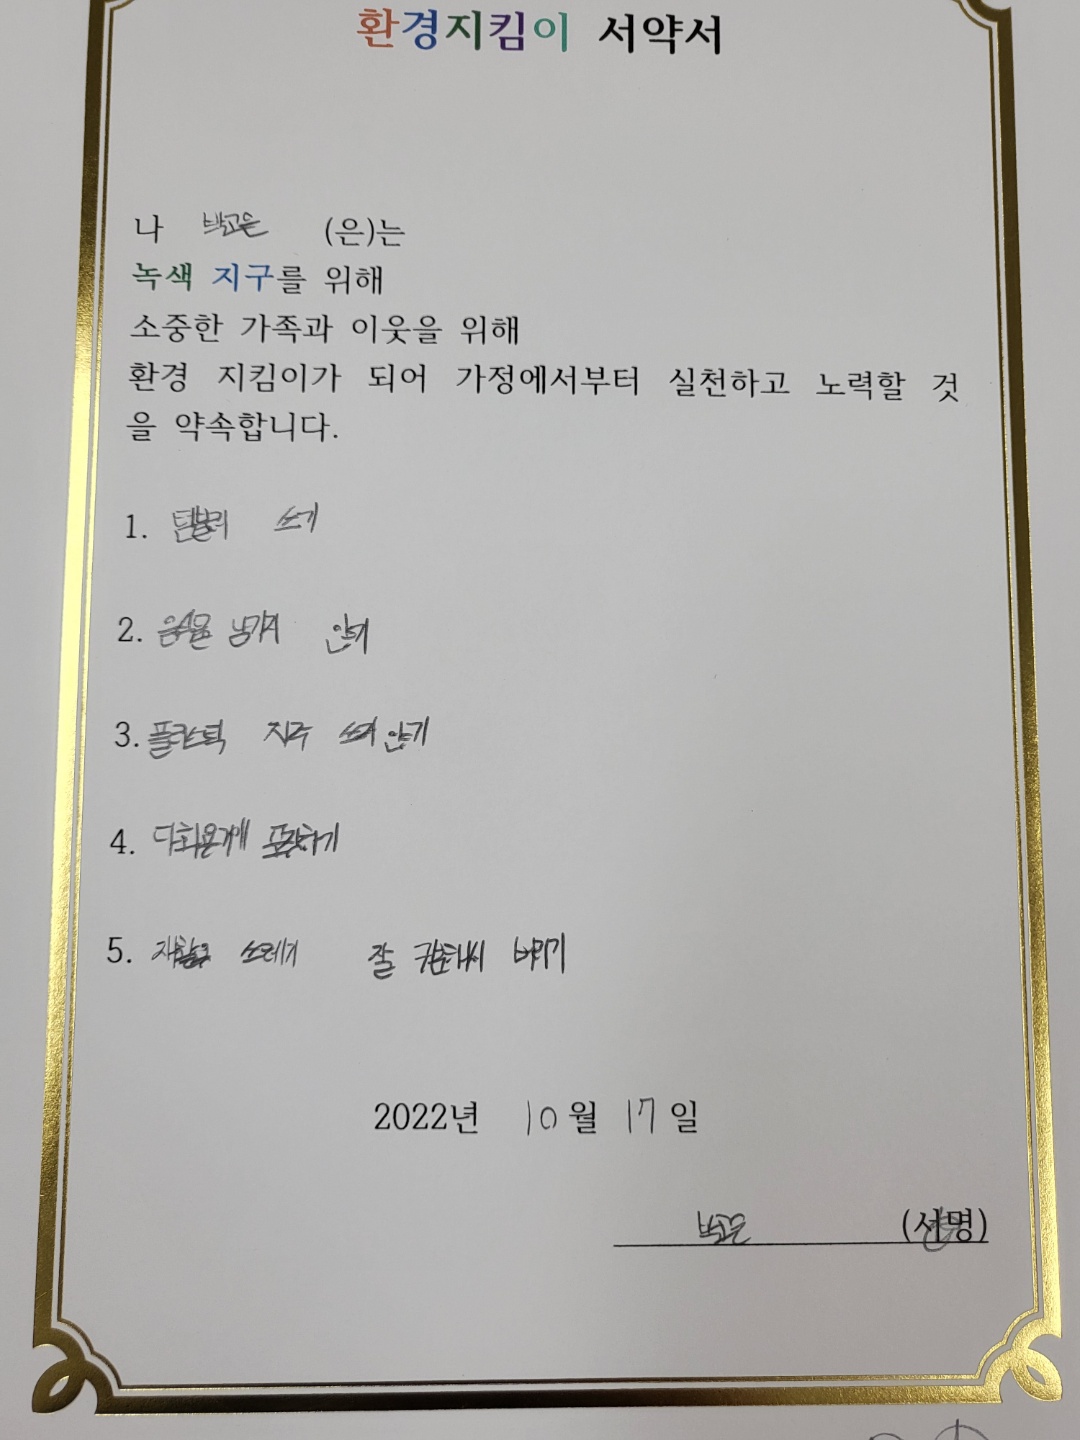 환경지킴이 서약서
나 박고은 (은)는
녹색 지구를 위해
소중한 가족과 이웃을 위해
환경 지킴이가 되어 가정에서부터 실천하고 노력할 것
을 약속합니다.
1. 텀블러 쓰기
2. 음식물 남기지 않기
3. 플라스틱 자주 쓰지 않기
4. 다회용기에 포장하기
5. 쓰레기 잘 버리기
2022년 10월 17일
박고은 (서명)